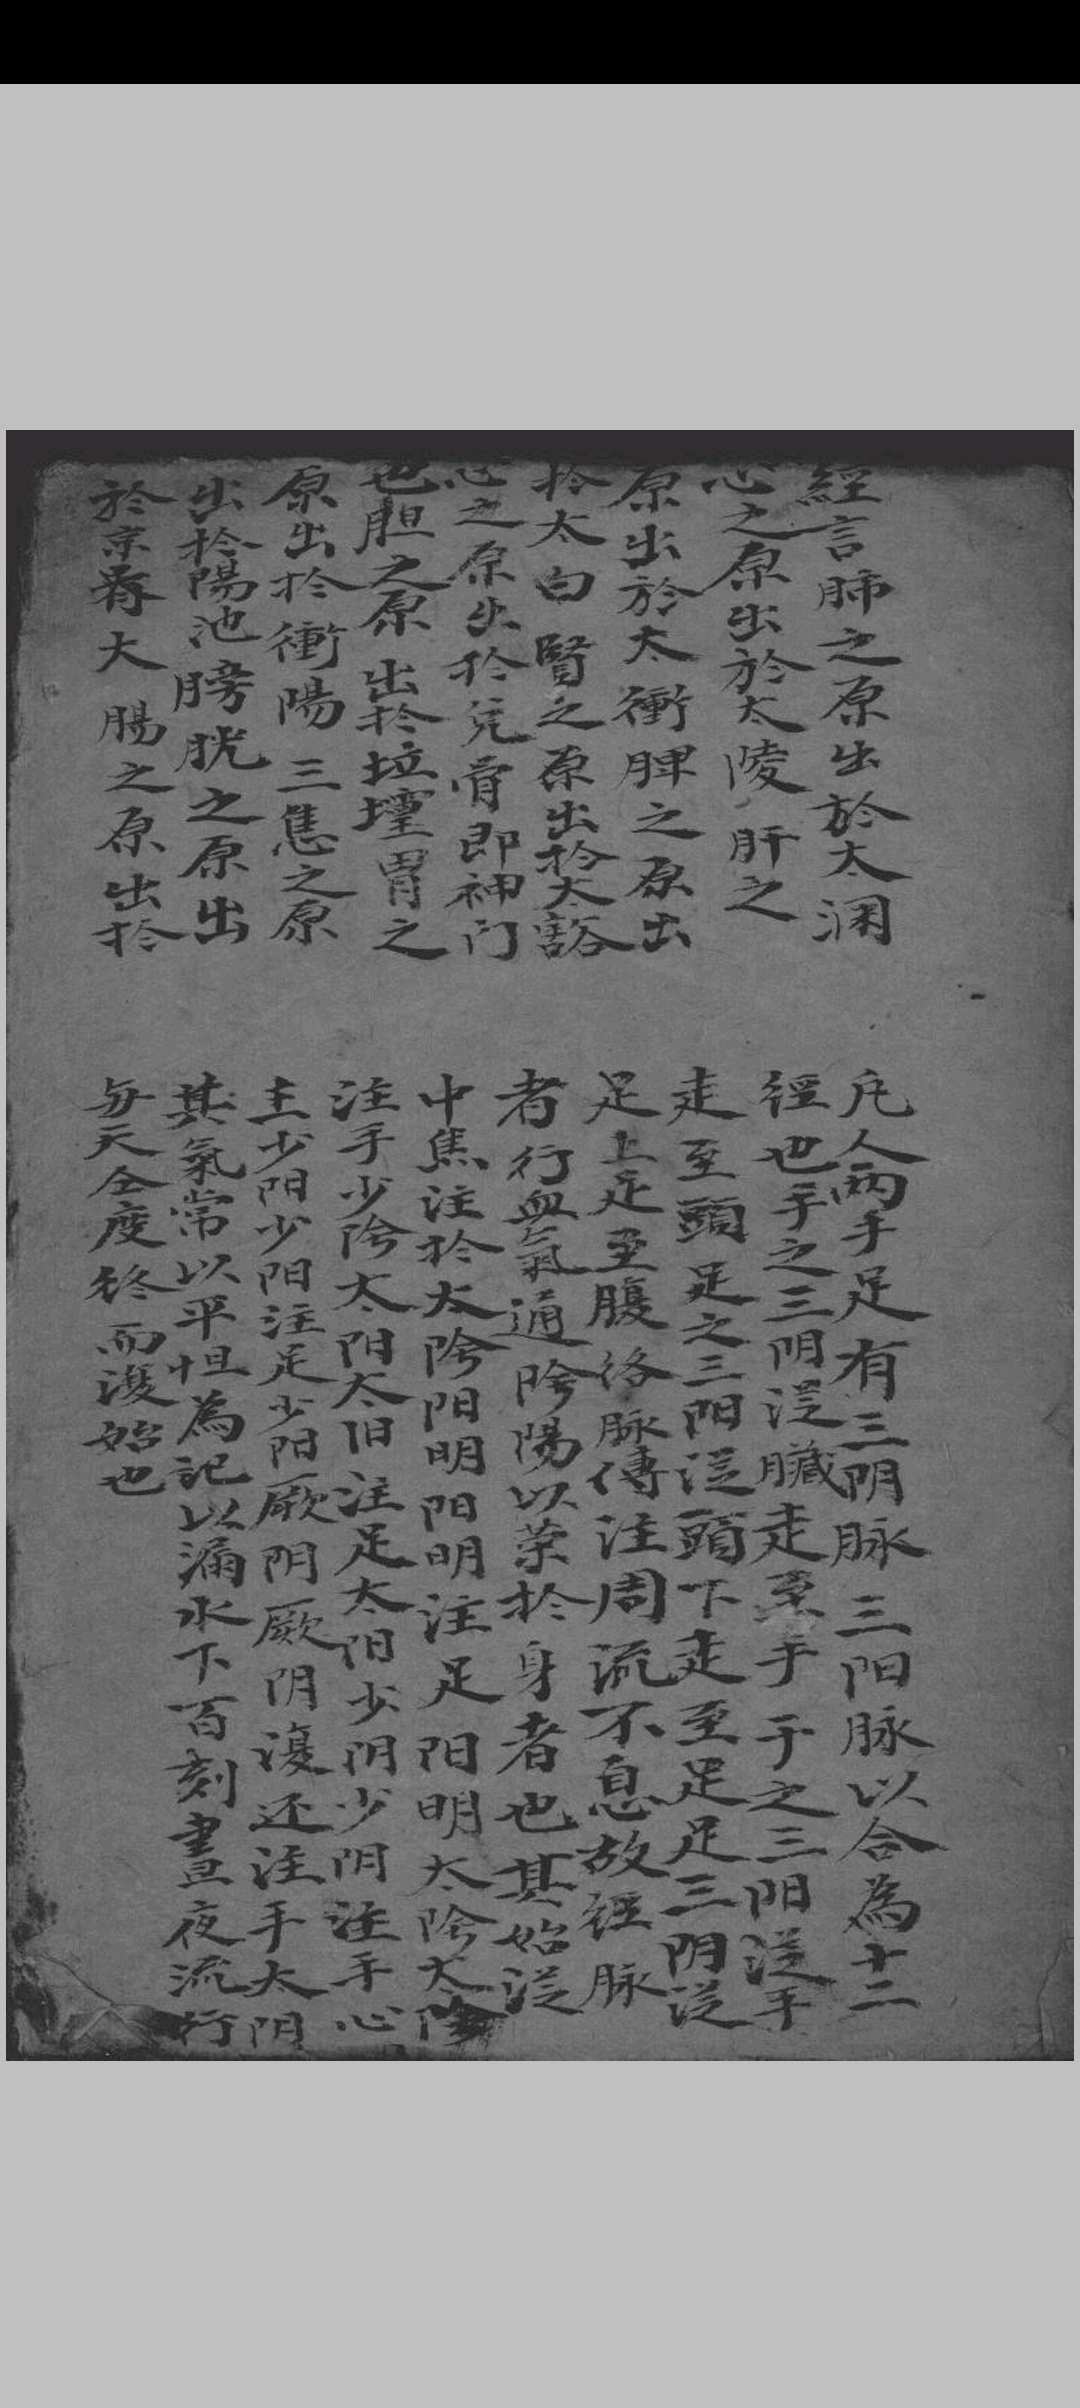 經言肺之原出於太渊
心之原出於太陵肝之
原出於太衝脾之原出
扵太白腎之原出扵太谿
心之原出扵兌骨即神门
也胆之原出扵坵墟胃之
原出扵衝陽三焦之原
出扵陽池膀胱之原出
於京骨大腸之原出扵
凡人两手足有三阴脉三阳脉以合為十二
經也手之三阴従臟走至手手之三阳従手
走至頭足之三阳従頭下走至足足三阴従
足上走至腹络脉傳注周流不息故経脉
者行血氣通陰陽以荣扵身者也其始従
中焦注扵太陰阳明阳明注足阳明太陰太陰
注手少陰太阳太阳注足太阳少阴少阴注手心
主少阳少阳注足少阳厥阴厥阴復还注手太阴
其氣常以平旦為記以漏水下百刻晝夜流行
每天仝度终而復始也